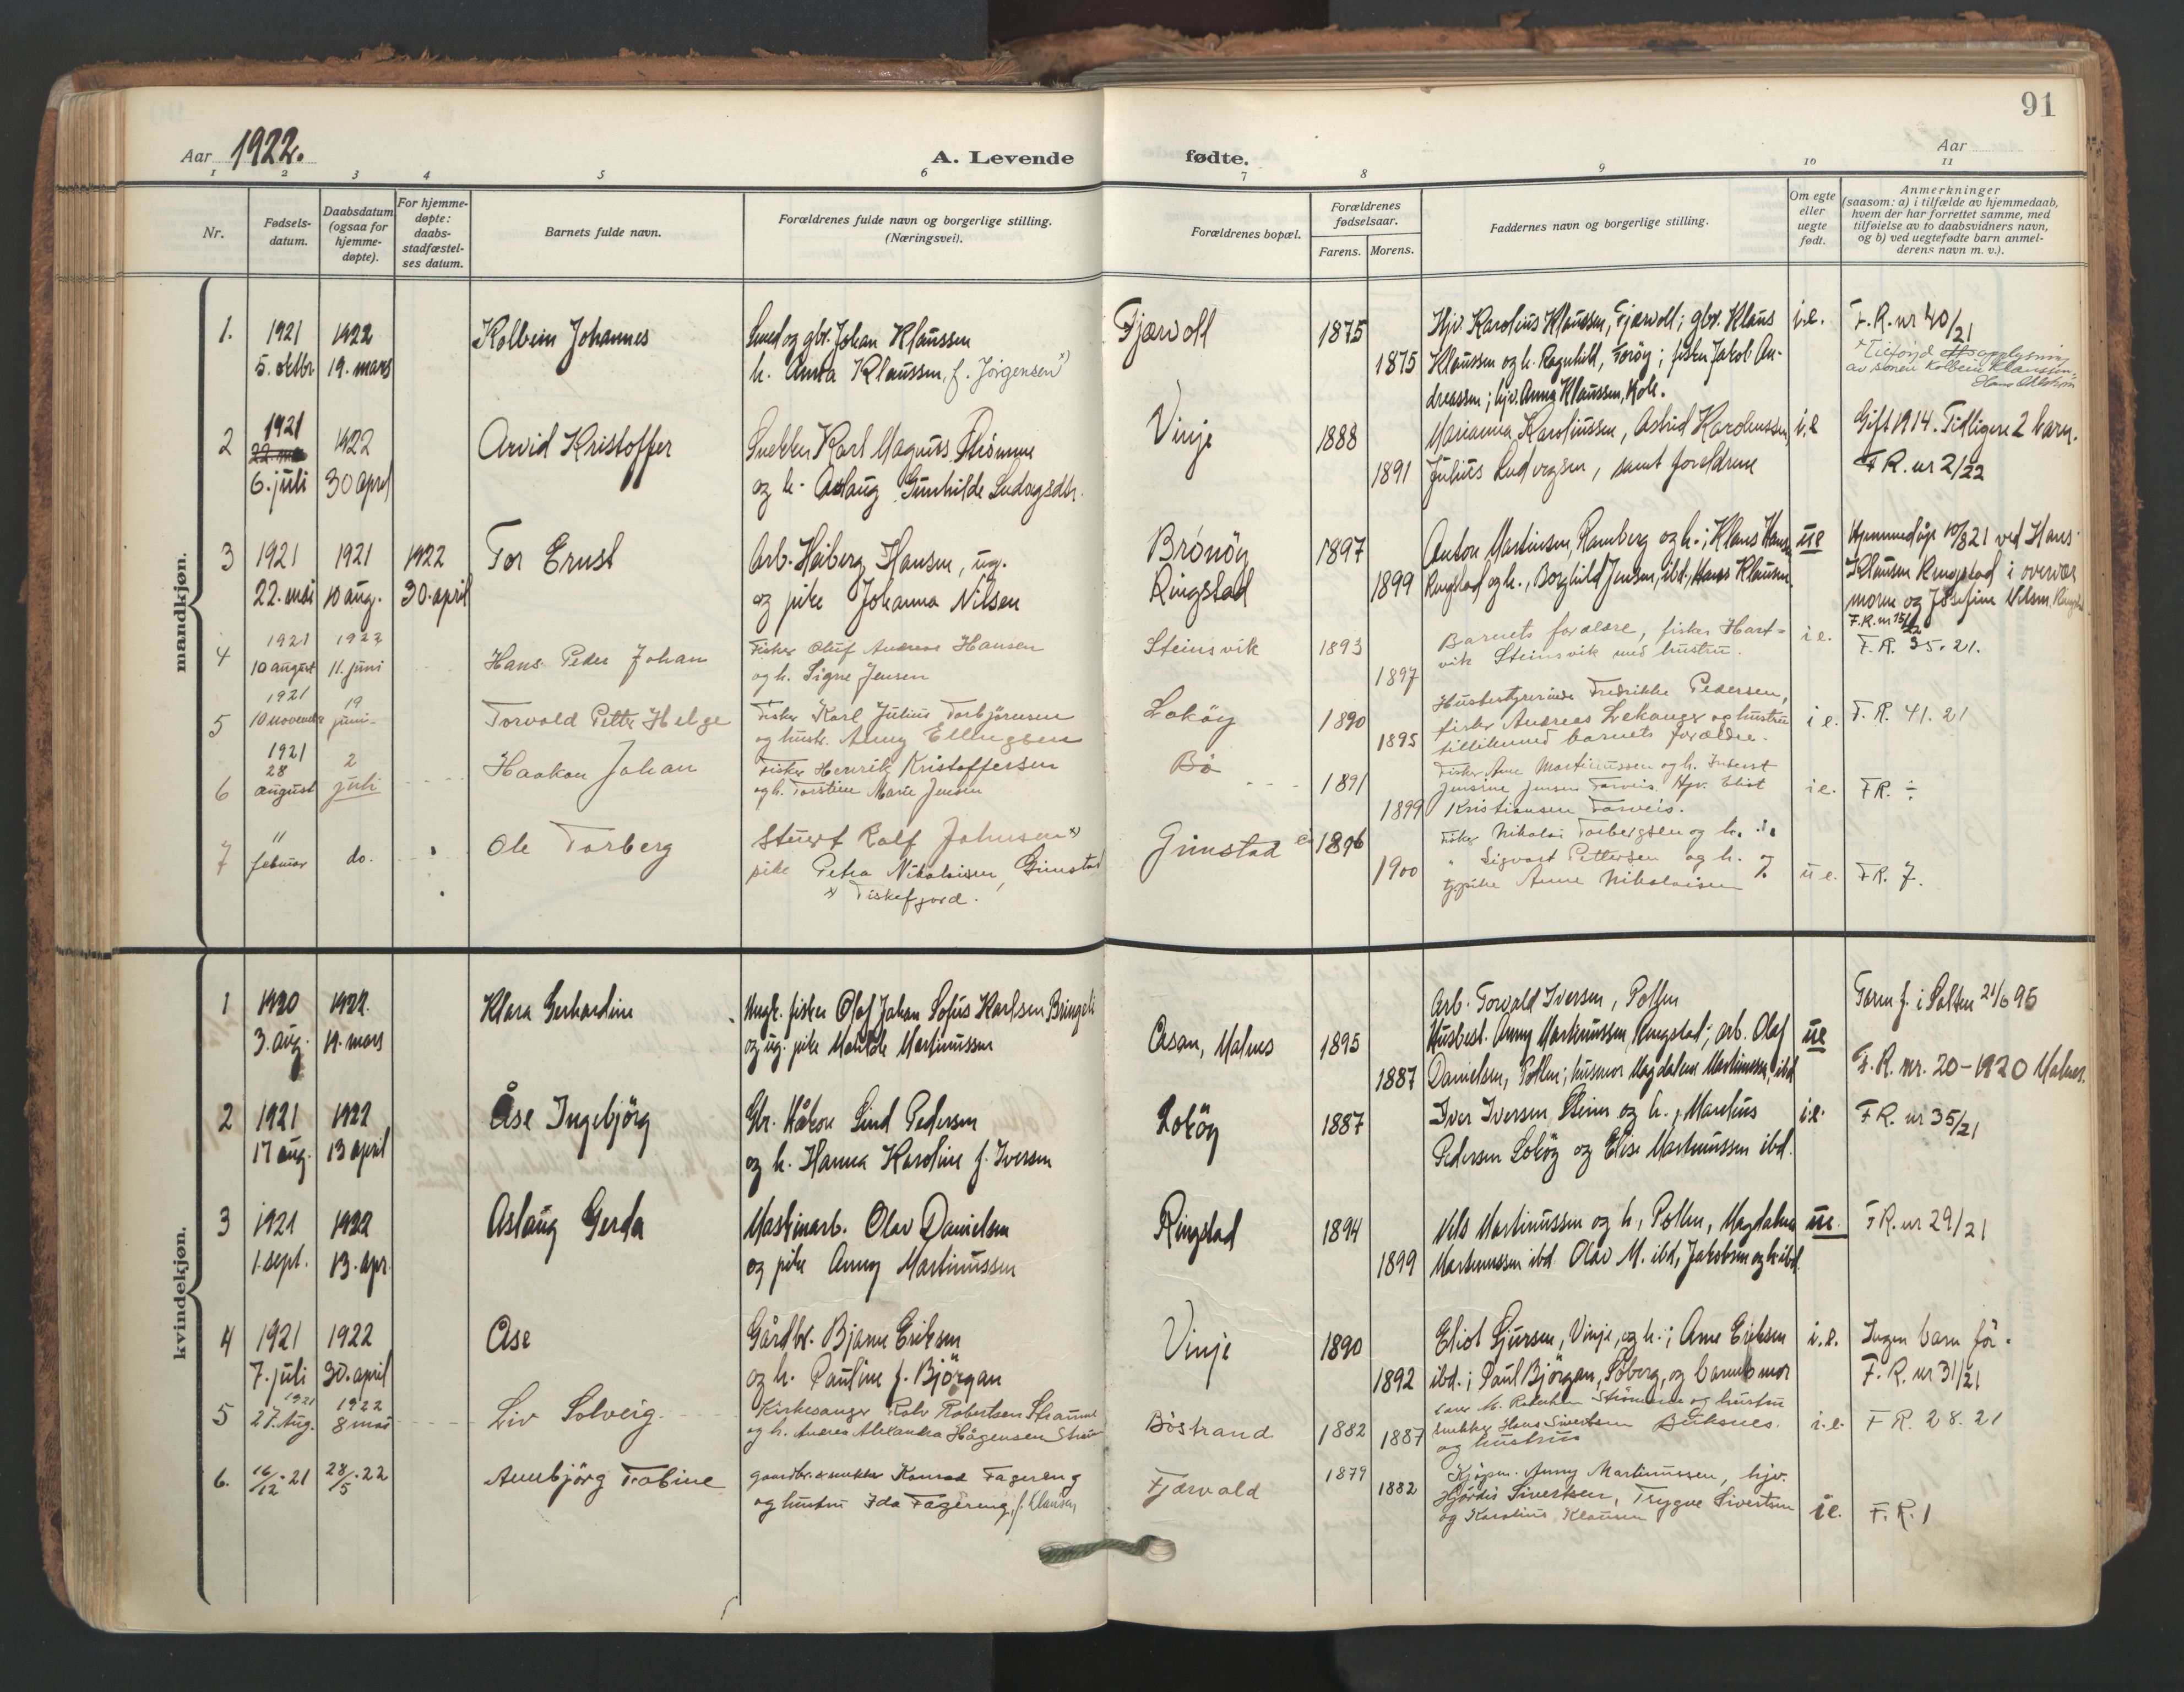 91
Aar 1922.
A. Levende fødte.
Aar
1 2 3 4 5 6 7 8 9 10 11
Nr.
Fødsels-
datum.
Daabsdatum
(ogsaa for
hjemme-
døpte).
For hjemme-
døpte:
daabs-
stadfæstel-
ses datum.
Barnets fulde navn.
Forældrenes fulde navn og borgerlige stilling.
(Næringsvei).
Forældrenes bopæl.
Forældrenes
fødselsaar.
Farens. Morens.
Faddernes navn og borgerlige stilling.
Om egte
eller
uegte
født.
Anmerkninger
(saasom: a) i tilfælde av hjemmedaab,
hvem der har forrettet samme, med
tilføielse av to daabsvidners navn,
og b) ved uegtefødte barn anmel-
derens navn m. v.).
mandkjøn.
1. 1921 1922 Kolbein Johannes Smed og gbr. Johan Klaussen Fjærvoll 1875 Hjv. Karolius Klaussen, Fjærvoll; gbr. Klaus i.e. F.R. nr 40/21
5. oktbr 19. mars h. Anna Klaussen, f. Jørgensen x) 1875 Klaussen og h. Ragnhild, ; fisker Jakob An-
x Tilføid opplysning
av sønnen Kolbein Klaussen.
dreassen; hjv. Anna Klaussen,
2 1921 1922 Arvid Kristoffer Snekker Karl Magnus Strømme Vinje 1888 Marianna Karoliussen, Astrid Karoliussen i.e Gift 1914. Tidligere 2 barn.
6. juli 30 april og h. Aslaug Gunhilde Ludvigsdtr. 1891 Julius Ludvigsen, samt foreldrene F.R. nr 2/22
3 1921 1921 1922 Tor Ernst Arb. Heiberg Hansen, ug. Brönöy 1897 Anton Martinsen, Ramberg og h.; Klaus Hansen ue Hjemmedøpt 10/8 21 ved Hans
22. mai 10 aug. 30. april og pike Johanna Nilsen Ringstad 1899 Ringstad og h., Borghild Jensen, ibd., Hans Klausen Klausen Ringstad i overvær
moren og Josefine Nilsen,
4 1921 1922 Hans Peder Johan Fisker Oluf Andreas Hansen Steinsvik 1893 Barnets forældre, fisker Hart- i e. F.R. 35. 21.
10 august 11. juni og h. Signe Jensen 1897 vik Steinsvik med hustru.
5 1921 19 Torvald Petter Helge Fisker Karl Julius Torbjörnsen Loköy 1890 Husbestyrerinde Fredrikke Pedersen, i e. F.R. 41. 21
10 november juni og hustr. Anny Ellingsen 1895 fisker Andreas Lekanger og hustru
tillikemed barnets forældre.
6 1921 28 august 2 juli Haakon Johan Fisker Henrik Kristoffersen Bö 1891 Fisker Arne Martinussen og h. i e. FR. ÷
og h. Torstine Marie Jensen 1899 Jensine Jensen Hjv. Eliot
Kristiansen
7 11 februar do. Ole Torberg Stuert Rolf Johnsen x) Grimstad 1896 Fisker Nikolai Torbergsen og h.
pike Petra Nikolaisen, Grimstad 1900 " Sigvart Pettersen og h. u e. FR. 7.
x) Fiskefjord. Anne Nikolaisen
kvindekjøn.
1 1920 1922. Klara Gerhardine Ungk. fisker Olaf Johan Sofus Karlsen Bringeli Arb. Torvald Iversen, Pollen Faren f. i Salten 21/6 95
3. aug. 19. mars og ug. pike Matilde Martinussen Åsan, Malnes 1895 Husbest. Anny Martinussen, Ringstad; arb. Olaf ue
1887 Danielsen, Pollen; husmor Magdalene Martinussen, ibd F.R. nr. 20 – 1920 Malnes.
2 1921 1922 Åse Ingebjörg Gbr. Håkon Lind Pedersen Loköy 1887 Iver Iversen, Steine og h., Marelius i.e. FR. nr 35/21
17 aug. 13 april og h. Hanna Karoline f. Iversen Pedersen Loköy og Elise Martinussen ibd.
3 1921 1922 Aslaug Gerda Maskinarb. Olav Danielsen Ringstad 1894 Nils Martinussen og h, Pollen, Magdalene ue. FR. nr 29/21
1. sept. 13. apr. og pike Anny Martinussen 1899 Martinussen ibd. Olav M. ibd, Jakobsen og h. ibd.
4 1921 1922 Åse Gårdbr. Bjarne Eriksen Vinje 1890 Eliot Sjursen, Vinje, og h.; Arne Eriksen i.e. Ingen barn før.
7. juli 30. april og h. Pauline f. Björgan 1892 ibd.; Paul Björgan, Söberg, og barnets mor F.R. nr 31/21
5 1921 1922 Liv Solveig Kirkesanger Rolv Robertsen Straume Böstrand 1882 og hustru i.e. F R. 28. 21
27. Aug. 8 mai og h. Andrea Alexandra Hågensen 1887 snekker Hans Sivertsen Buksnes.
og hustru
6. 16/12-21 28/5-22 Annbjörg Tobine gaardbr. & snekker Konrad Fagereng Fjærvold 1879 Kjöpm. Anny Martinussen, hjv. i e. F.R. 1
og hustru Ida Fagereng, f. Klausen 1882 Hjördis Sivertsen, Trygve Sivertsen
og Karolius Klausen